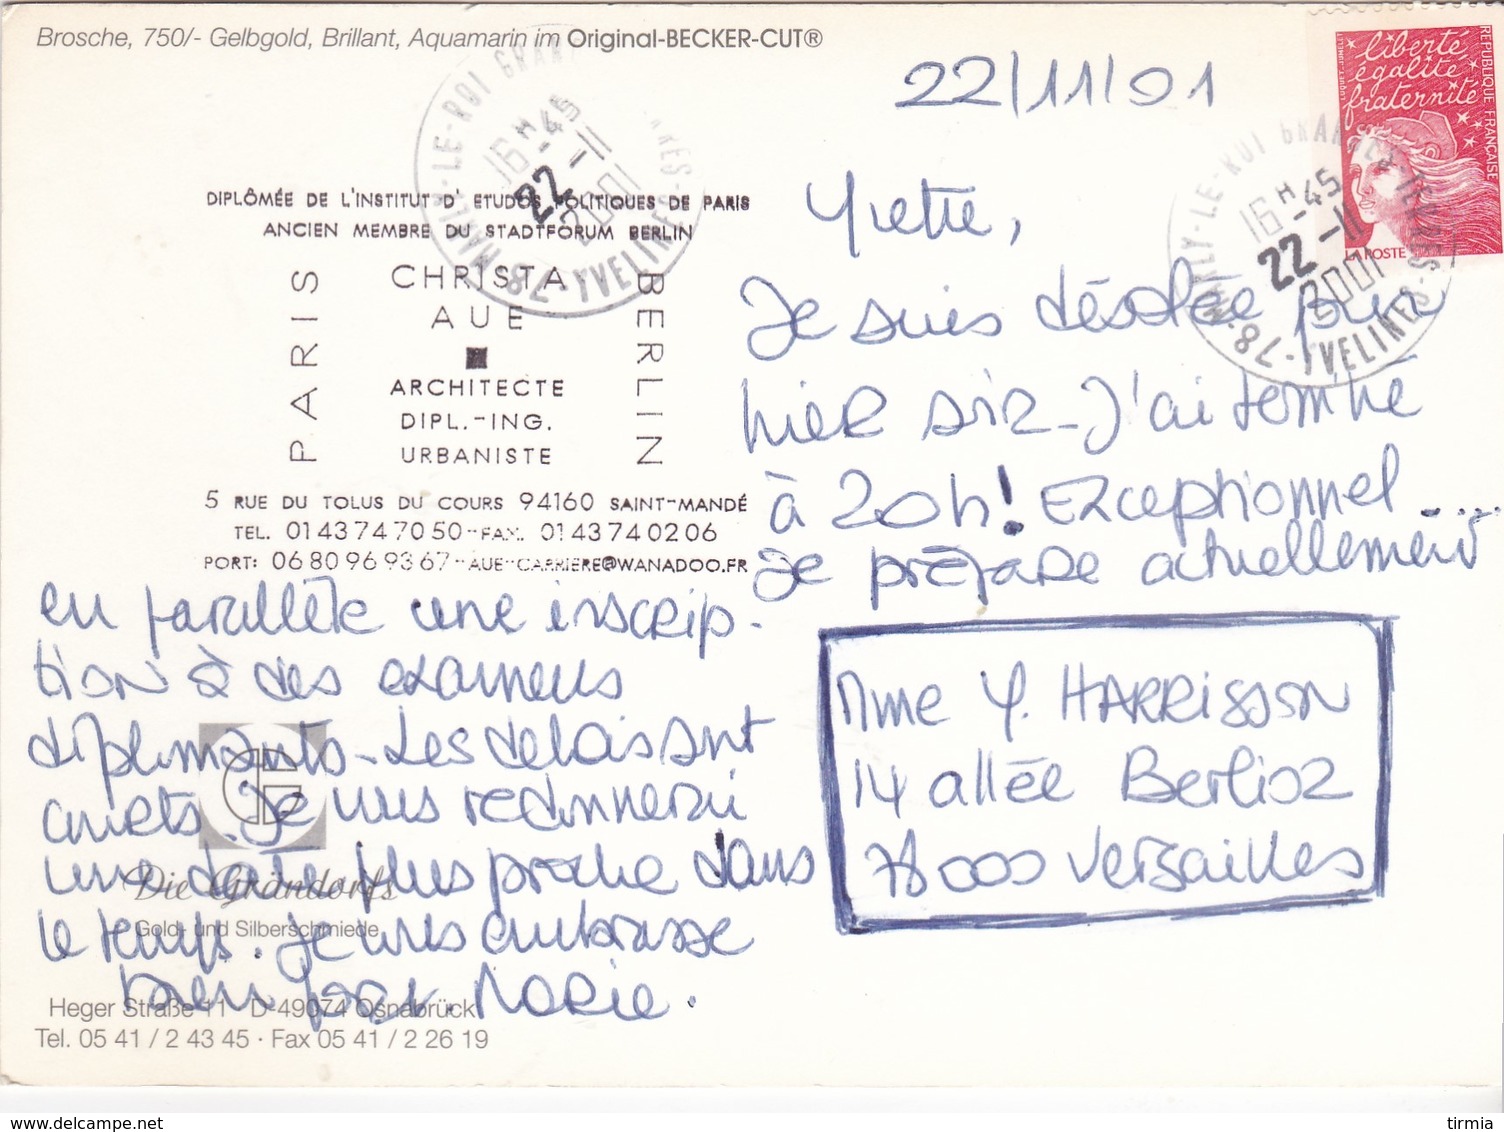 Brosche, 750/- Gelbgold, Brillant, Aquamarin im Original-BECKER-CUT®
MARLY-LE-ROI GRANDES TERRES
16H-45
22-11
2001
78-YVELINES
liberté
égalité
fraternité
REPUBLIQUE FRANÇAISE
LUQUET-JUMELET
LA POSTE
MARLY-LE-ROI GRANDES TERRES
16H-45
22-11
2001
78-YVELINES
DIPLÔMÉE DE L'INSTITUT D' ETUDES POLITIQUES DE PARIS
ANCIEN MEMBRE DU STADTFORUM BERLIN
PARIS
CHRISTA
AUE
ARCHITECTE
DIPL.-ING.
URBANISTE
BERLIN
5 RUE DU TOLUS DU COURS 94160 SAINT-MANDÉ
TEL. 01 43 74 70 50 - FAX. 01 43 74 02 06
PORT: 06 80 96 93 67 - AUE-CARRIERE@WANADOO.FR
22/11/01
Yvette,
Je suis désolée pour
hier soir - J'ai terminé
à 20h! Exceptionnel ....
Je prépare actuellement
en parallèle une inscrip-
tion à des examens
diplômants - Les délaissant
après. Je vous redonnerai
une date plus proche dans
le temps. Je vous embrasse
bien fort. Marie.
Mme Y. HARRISSON
14 allée Berlioz
78000 Versailles
Die Grändorfs
Gold- und Silberschmiede
Heger Straße 11 D-49074 Osnabrück
Tel. 05 41 / 2 43 45 · Fax 05 41 / 2 26 19
tirmia